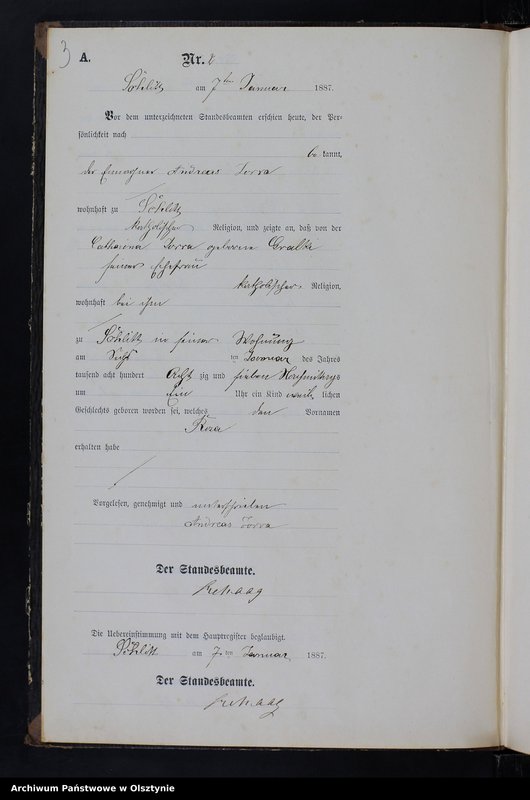 3
A. Nr.
am 7ten Januar 1887.
Vor dem unterzeichneten Standesbeamten erschien heute, der Per-
sönlichkeit nach
be kannt,
der Einwohner Andreas Sorra
wohnhaft zu
katholischer Religion, und zeigte an, daß von der
Catharina Sorra geborene
seiner Ehefrau
katholischer Religion,
wohnhaft bei ihm
zu in seiner Wohnung
am ten Januar des Jahres
tausend acht hundert Acht zig und sieben Nachmittags
um Ein Uhr ein Kind weib lichen
Geschlechts geboren worden sei, welches den Vornamen
Rosa
erhalten habe
Vorgelesen, genehmigt und unterschrieben
Andreas Sorra
Der Standesbeamte.
Die Uebereinstimmung mit dem Hauptregister beglaubigt.
am 7ten Januar 1887.
Der Standesbeamte.
Archiwum Państwowe w Olsztynie